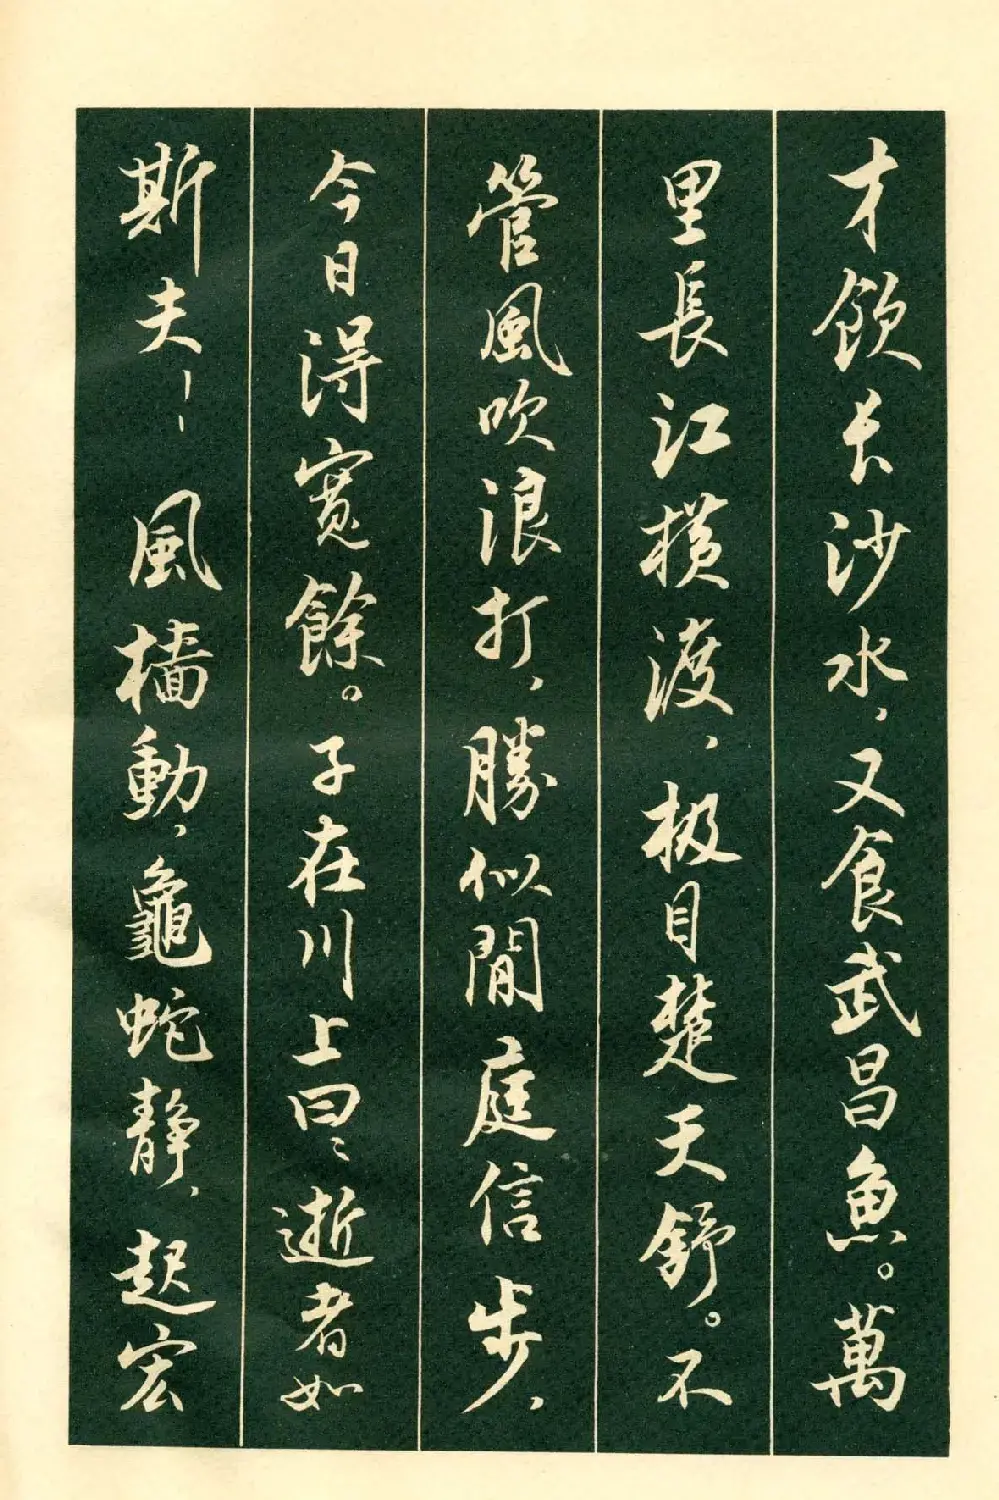 才飲长沙水，又食武昌魚。萬
里長江橫渡，极目楚天舒。不
管風吹浪打，勝似閒庭信步，
今日得寬餘。子在川上曰：逝者如
斯夫！！風檣動，龜蛇静，起宏